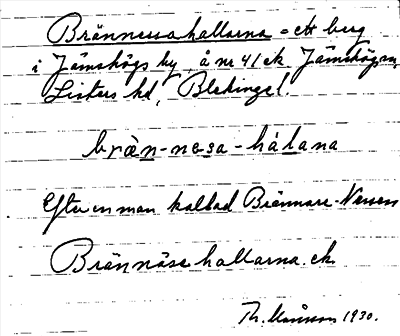 Brännesahallarna = ett berg
i Jämshögs by, å nr 41 ek Jämshögs sn,
Listers hd, Blekinge l.
bræ̀n-nesa-hálana
Efter en man kallad Brännare-Nissen
Brännäsehallarna. ek
Th. 1930.